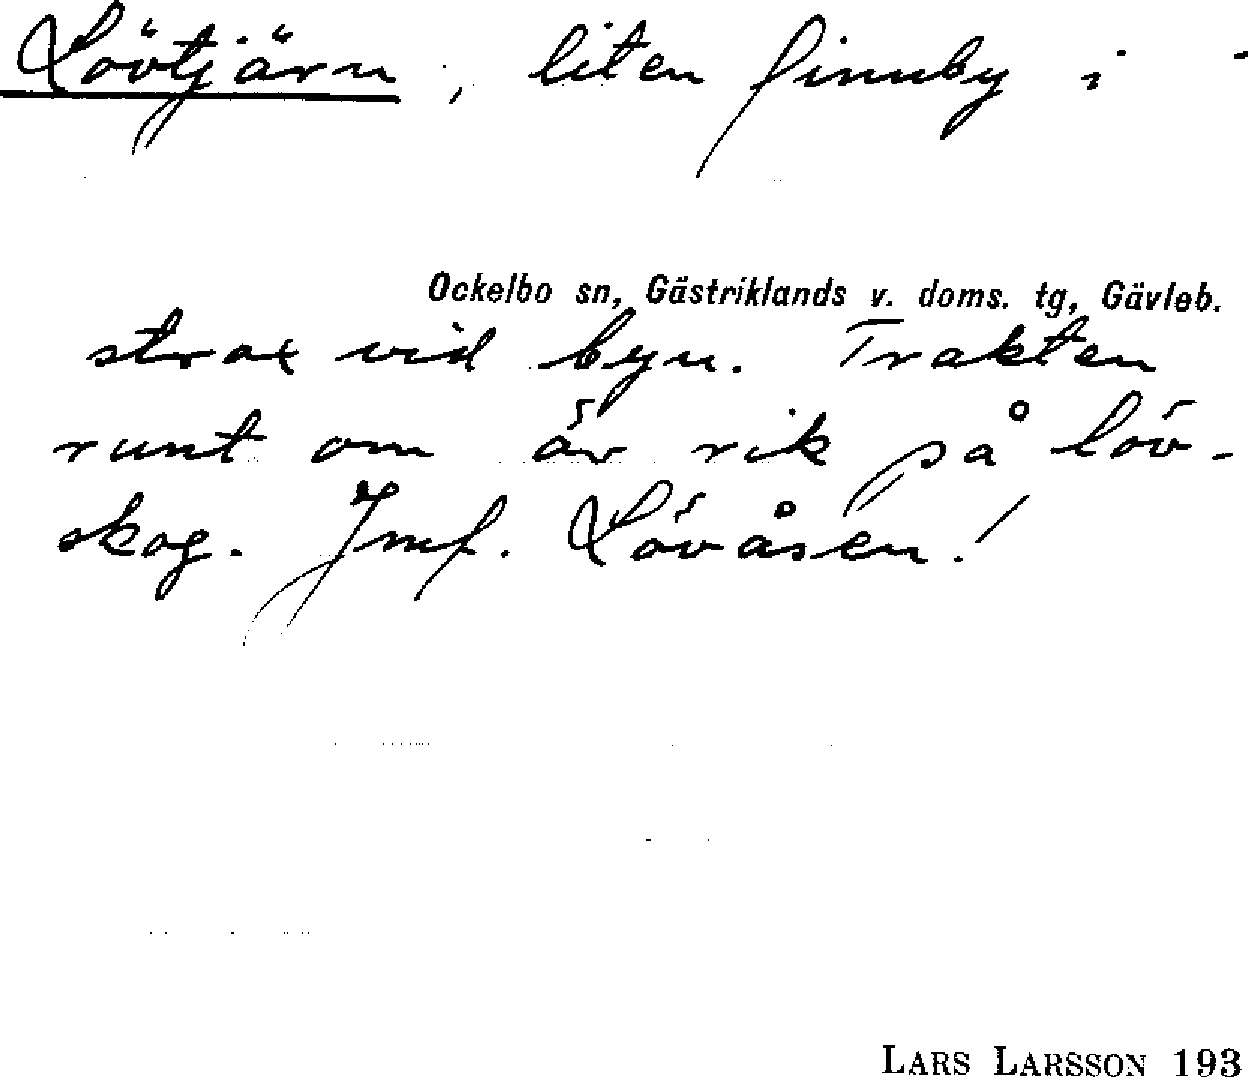 Lövtjärn, liten finnby i
Ockelbo sn, Gästriklands v. doms. tg, Gävleb.
strax vid byn. Trakten
runt om är rik på löv-
skog. Jmf. Lövåsen!
LARS LARSSON 193